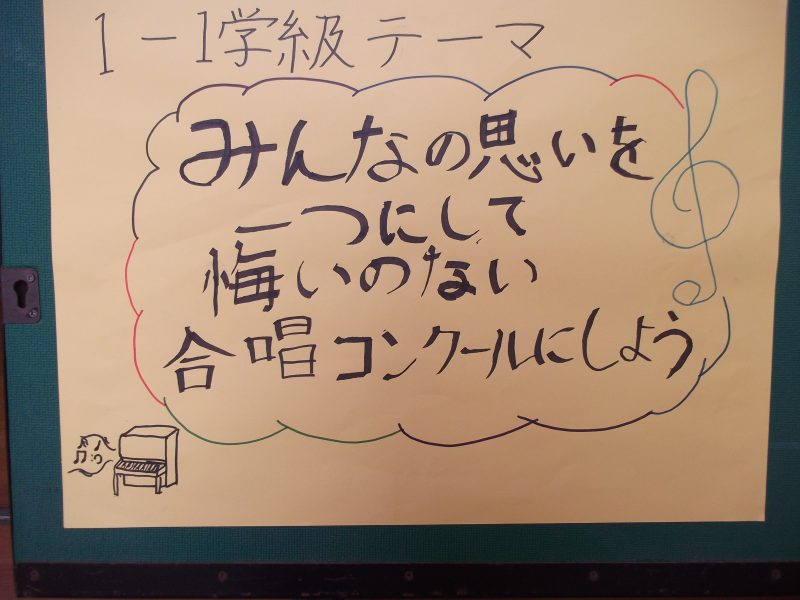 1-1学級テーマ
みんなの思いを
一つにして
悔いのない
合唱コンクールにしよう